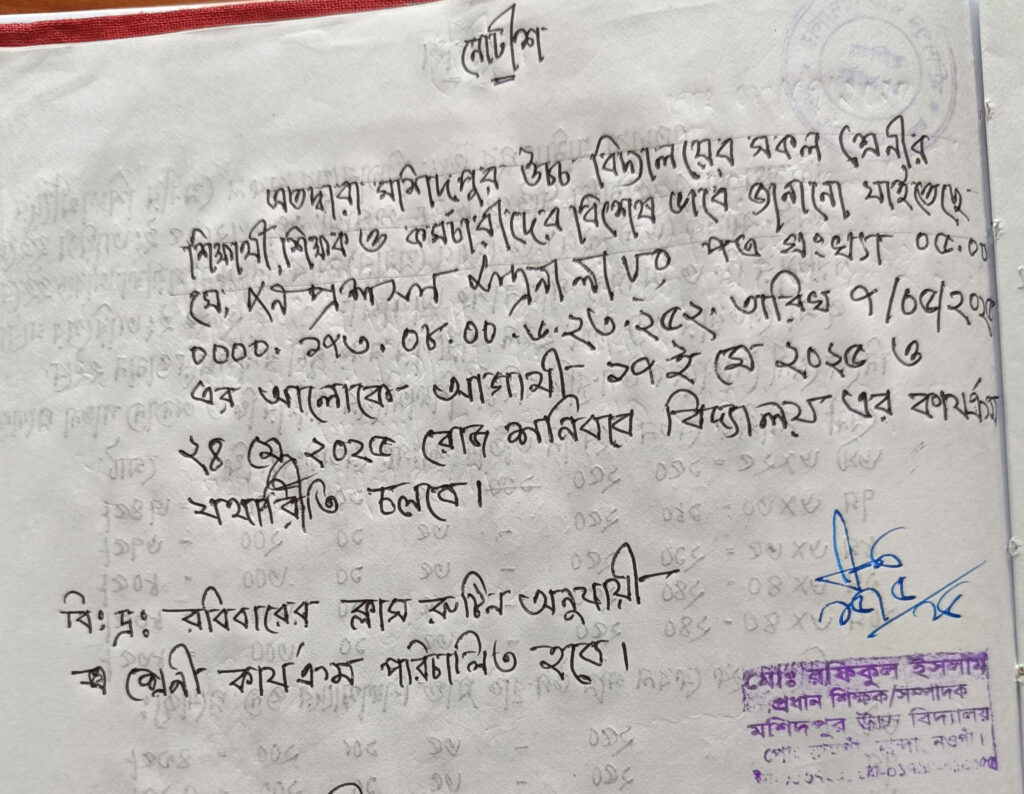 নোটীশ
এতদ্বারা মশিদপুর উচ্চ বিদ্যালয়ের সকল শ্রেনীর
শিক্ষার্থী, শিক্ষক ও কর্মচারীদের বিশেষ ভাবে জানানো যাইতেছে
যে, পত্র সংখ্যা ০৫.০০
০০০০. ১৭৩. ০৮. ০০. ২৩. ২৫২. তারিখ ৭/০৫/২০২৫
এর আলোকে আগামী ১৭ ই মে ২০২৫ ও
২৪ মে ২০২৫ রোজ শনিবার বিদ্যালয় এর কার্যক্রম
যথারীতি চলবে।
বি: দ্র: রবিবারের ক্লাস রুটিন অনুযায়ী
শ্রেনী কার্যক্রম পরিচালিত হবে।
মোঃ রফিকুল ইসলাম
প্রধান শিক্ষক/সম্পাদক
মশিদপুর উচ্চ বিদ্যালয়
নওগাঁ।